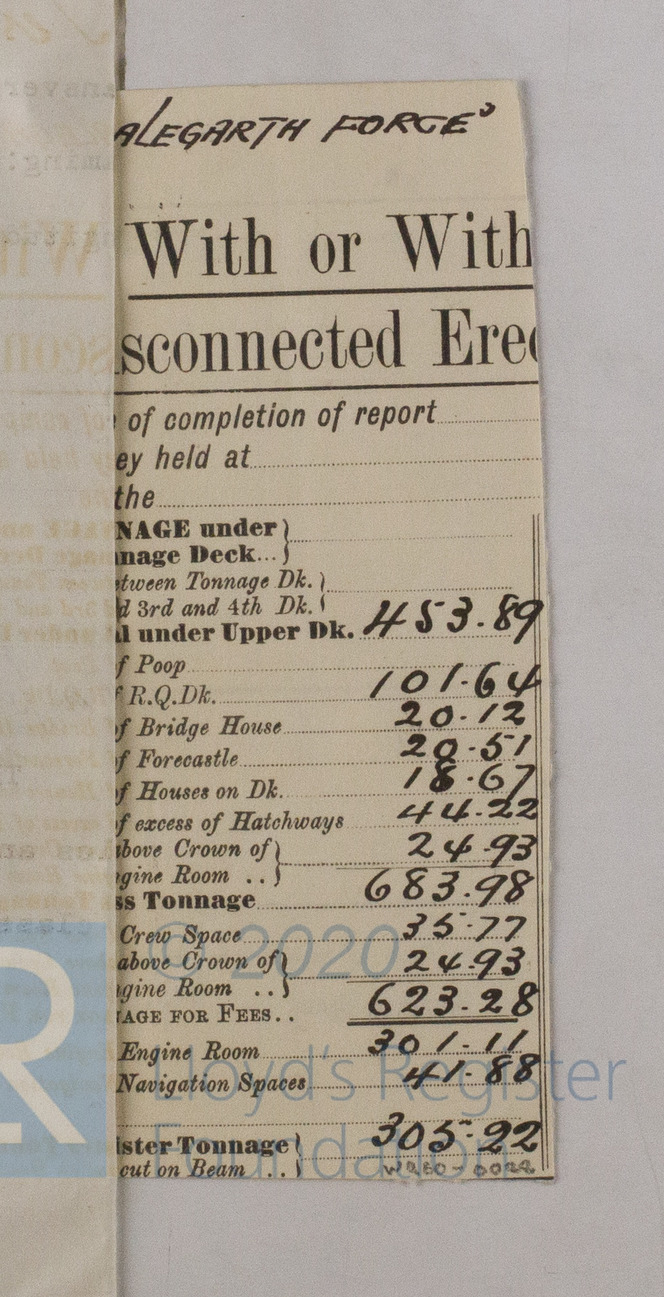 ALEGARTH FORCE"
With or With
sconnected Erec
of completion of report
ey held at
the
NAGE under
nnage Deck...
etween Tonnage Dk.
d 3rd and 4th Dk.
l under Upper Dk. 453.89
f Poop
f R.Q.Dk. 101.64
of Bridge House 20.12
f Forecastle 20.51
of Houses on Dk. 18.67
of excess of Hatchways 44.22
above Crown of
ngine Room .. 24.93
ss Tonnage 683.98
Crew Space 35.77
above Crown of
ngine Room .. 24.93
NAGE FOR FEES.. 623.28
Engine Room 301.11
Navigation Spaces 41.88
ister Tonnage 305.92
cut on Beam .. W280-0022
© 2020
Lloyd's Register
Foundation